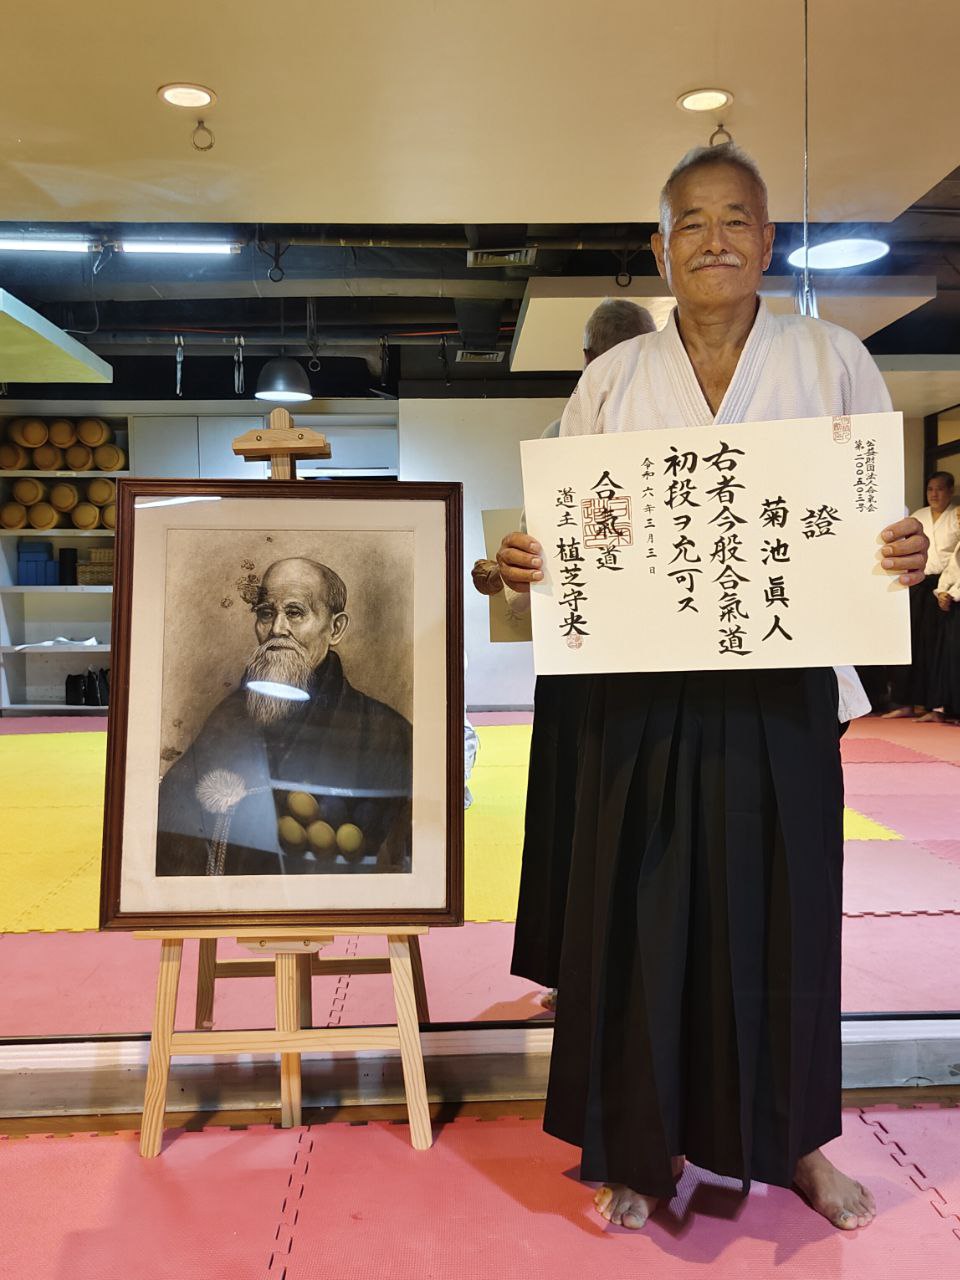 公益財団法人合氣会
第二〇〇五〇三号
證
菊池眞人
右者今般合氣道
初段ヲ允可ス
令和六年三月三日
合氣道
道主 植芝守央